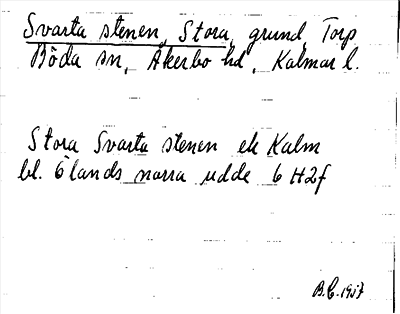 Svarta stenen, Stora, grund, Torp
Böda sn, Åkerbo hd, Kalmar l.
Stora Svarta stenen ek Kalm
bl. Ölands norra udde 6 H2f
B.C. 1917